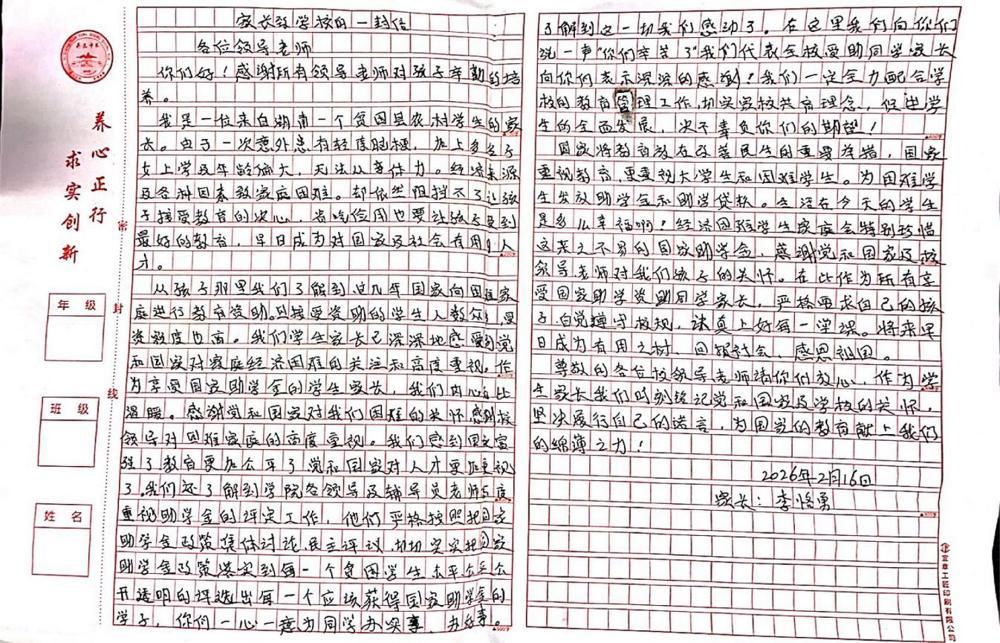 养心正行
求实创新
密
封
线
年级
班级
姓名
家长致学校的一封信
各位领导老师
你们好！感谢所有领导老师对孩子辛勤的培
养。
我是一位来自湖南一个贫困县农村学生的家
长。由于一次意外患有轻度脑梗，加上多名子
女上学及年龄偏大，无法从事体力。经济来源
及各种因素致家庭困难。却依然阻挡不了让孩
子接受教育的决心，省吃俭用也要让孩子受到
最好的教育，早日成为对国家及社会有用的人
才。
从孩子那里我们了解到过几年国家向困难家
庭进行教育资助。且接受资助的学生人数众，受
资额度也高。我们学生家长已深深地感受到党
和国家对家庭经济困难的关注和高度重视。作
为享受国家助学金的学生家长，我们内心無比
温暖。感谢党和国家对我们困难的关怀感谢校
领导对困难家庭的高度重视。我们感到国家富
强了教育更加公平了党和国家对人才更加重视
了。我们还了解到学院各领导及辅导员老师高度
重视助学金的评定工作，他们严格按照把国家
助学金政策集体讨论，民主评议，切切实实把国家
助学金政策落实到每一个贫困学生公平公正公
开透明的评选出每一个应该获得国家助学金的
学子，你们一心一意为同学办实事，办好事。
了解到这一切我们感动了。在这里我们向你们
说一声"你们辛苦了"我们代表全校受助同学家长
向你们表示深深的感谢！我们一定全力配合学
校的教育管理工作，切实家校共育理念，促进学
生的全面发展，决不辜负你们的期望！
国家将教育放在改善民生的重要举措，国家
重视教育，更重视大学生和困难学生。为困难学
生发放助学金和助学贷款。生活在今天的学生
是多么幸福啊！经济困难学生家庭会特别珍惜
这来之不易的国家助学金，感谢党和国家及校
领导老师对我们孩子的关怀。在此作为所有享
受国家助学资助同学家长，严格要求自己的孩
子，自觉遵守校规，认真上好每一学课。将来早
日成为有用之材，回报社会，感恩祖国。
尊敬的各位校领导老师请你们放心，作为学
生家长我们时刻铭记党和国家及学校的关怀，
坚决履行自己的诺言，为国家的教育献上我们
的绵薄之力！
2026年2月16日
家长：李悟勇